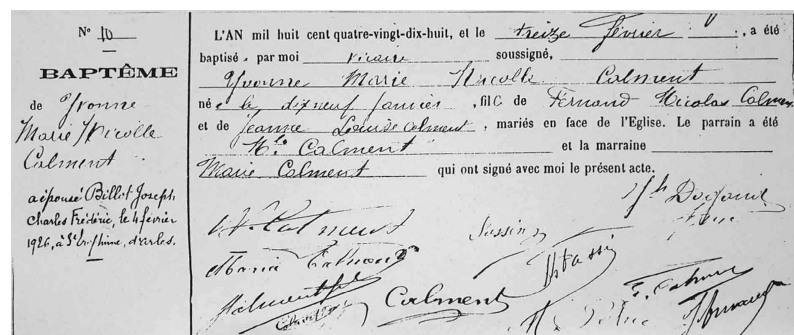 N° 10
BAPTÊME
de Yvonne
Marie Nicolle
Calment
a épousé Billot Joseph
Charles Frédéric, le 4 février
1926, à St Trophime, d'Arles.
L'AN mil huit cent quatre-vingt-dix-huit, et le treize février, a été
baptisé, par moi vicaire soussigné,
Yvonne Marie Nicolle Calment
né e le dix neuf janvier, fille de Fernand Nicolas Calment
et de Jeanne Louise Calment, mariés en face de l'Eglise. Le parrain a été
N. Calment et la marraine
Marie Calment qui ont signé avec moi le présent acte.
N. Calment
Maria Calment
Calment
F. Calment